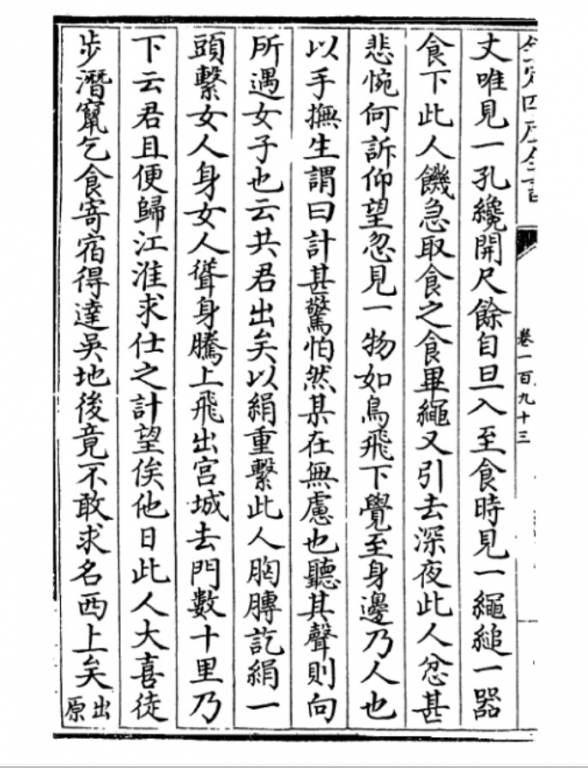 卷一百九十三
丈唯見一孔纔開尺餘自旦入至食時見一繩縋一器
食下此人饑急取食之食畢繩又引去深夜此人忿甚
悲惋何訴仰望忽見一物如鳥飛下覺至身邊乃人也
以手撫生謂曰計甚驚怕然某在無慮也聽其聲則向
所遇女子也云共君出矣以絹重繫此人胸膊訖絹一
頭繫女人身女人聳身騰上飛出宮城去門數十里乃
下云君且便歸江淮求仕之計望俟他日此人大喜徒
步潛竄乞食寄宿得達吳地後竟不敢求名西上矣出原